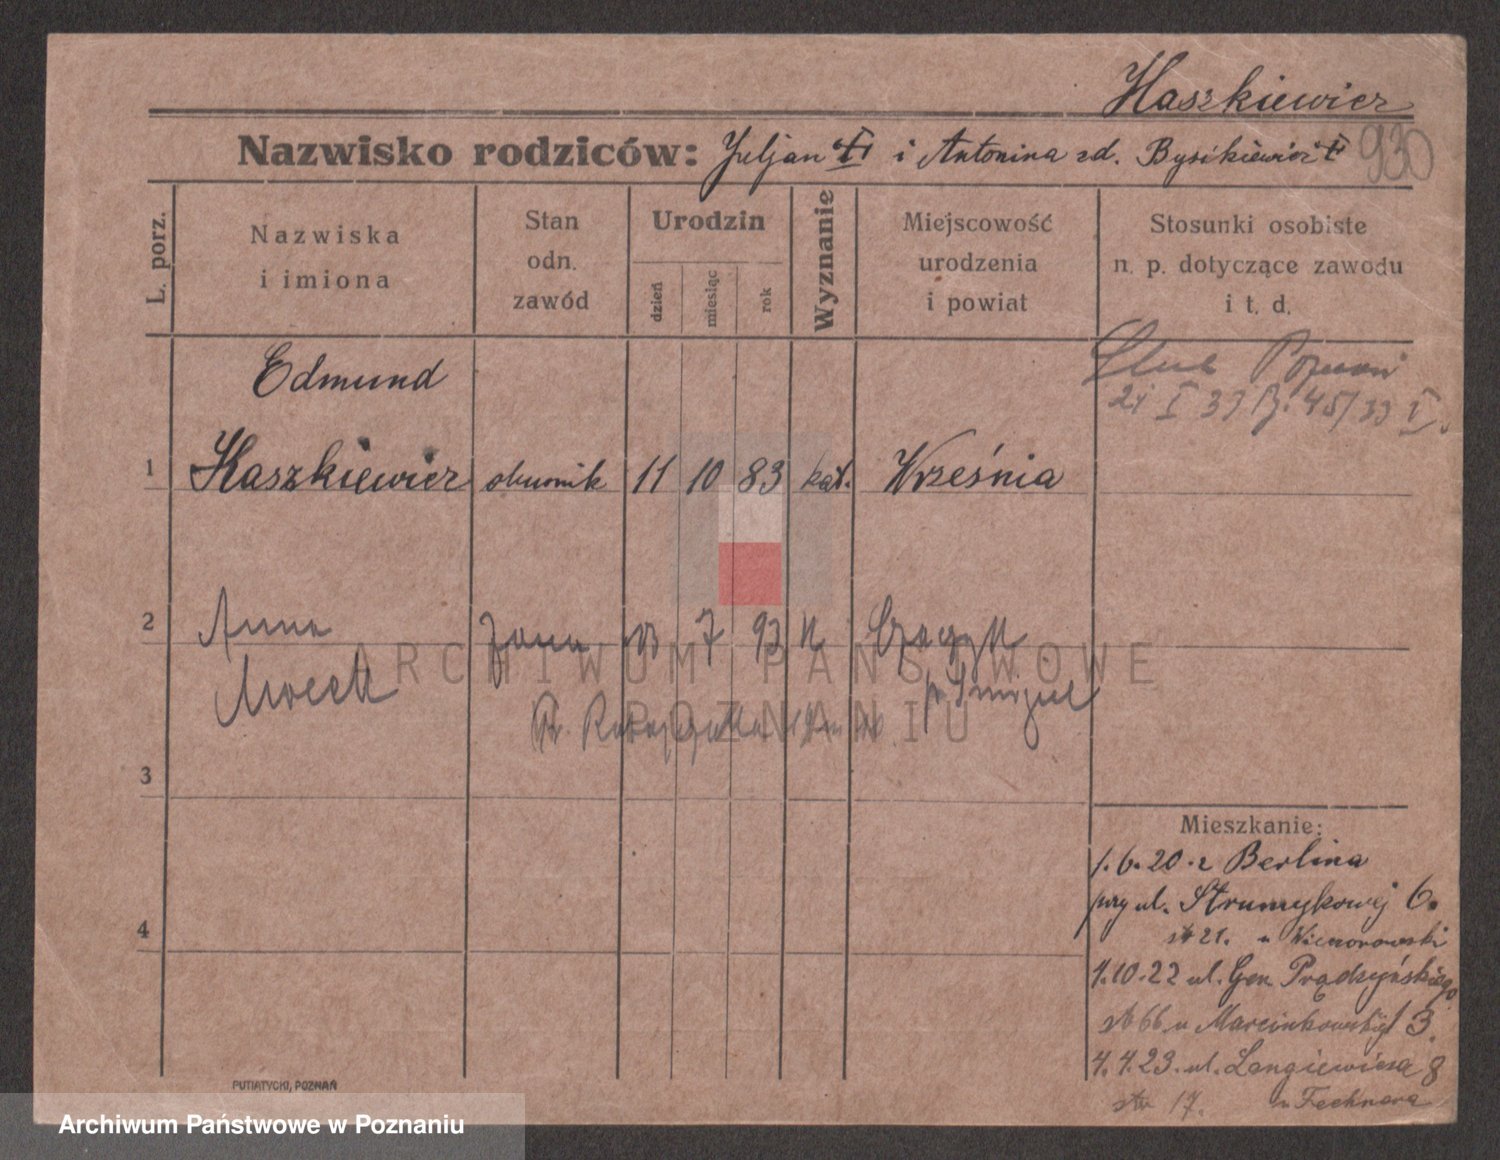 Haszkiewicz
Nazwisko rodziców: Juljan i Antonina zd. Bysikiewicz
930
L. porz.
Nazwiska
i imiona
Stan
odn.
zawód
Urodzin
dzień
miesiąc
rok
Wyznanie
Miejscowość
urodzenia
i powiat
Stosunki osobiste
n. p. dotyczące zawodu
i t. d.
Edmund
Ślub Poznań
21 I 33 45/33 I
1 Haszkiewicz 11 10 83 kat. Września
2 Anna żona 7 93 k
ARCHIWUM PAŃSTWOWE
W POZNANIU
3
Mieszkanie:
1.6.20 z Berlina
przy ul. Strumykowej 6.
str 21. u Wieczorowski
1.10.22 ul. Gen. Prądzyńskiego
str 66 u Marcinkowskiej 3.
4
4.4.23. ul. Langiewicza 8
str 17. u Fechnera
PUTIATYCKI, POZNAŃ
Archiwum Państwowe w Poznaniu